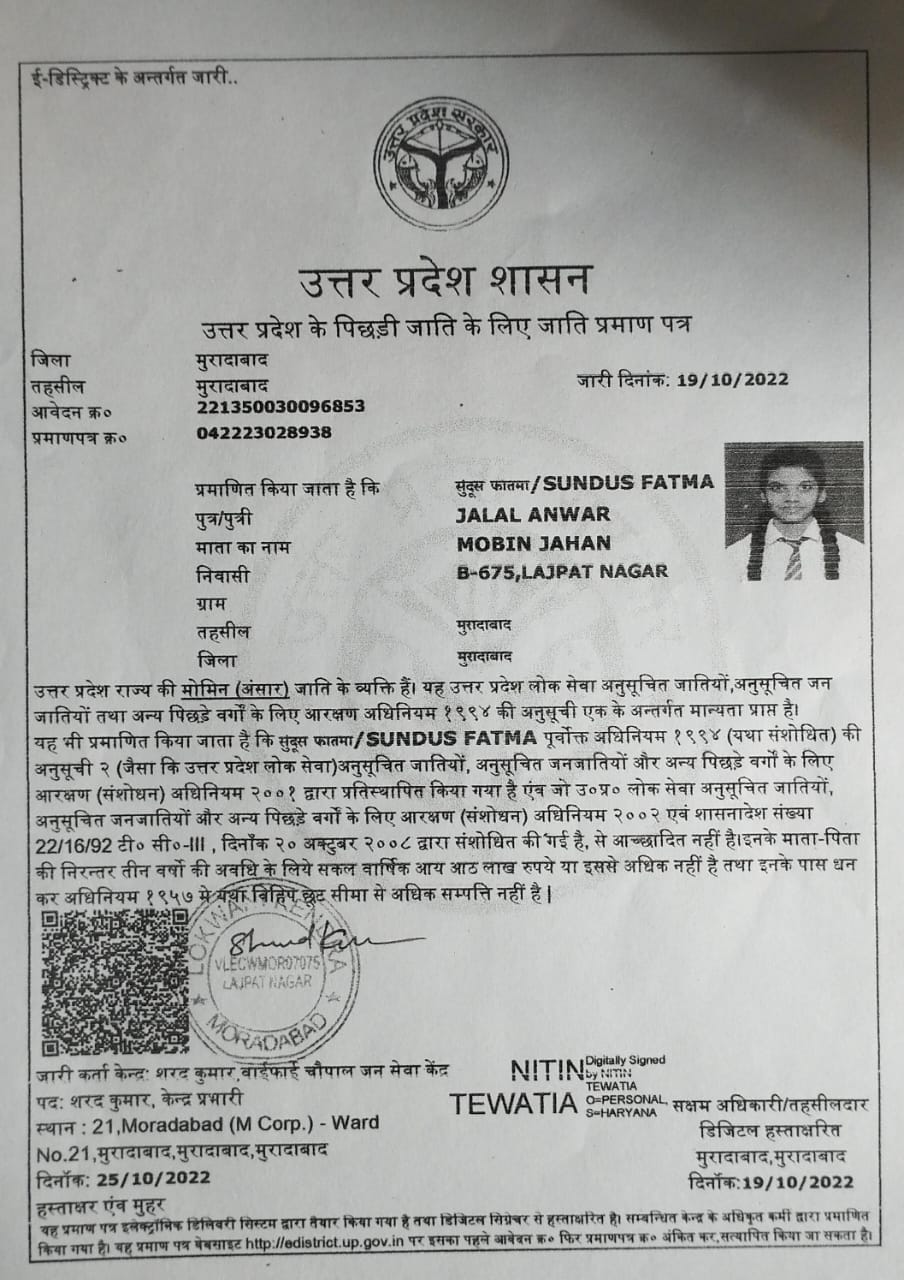 ई-डिस्ट्रिक्ट के अन्तर्गत जारी..
उत्तर प्रदेश सरकार
उत्तर प्रदेश शासन
उत्तर प्रदेश के पिछड़ी जाति के लिए जाति प्रमाण पत्र
जिला मुरादाबाद
तहसील मुरादाबाद जारी दिनांक: 19/10/2022
आवेदन क्र० 221350030096853
प्रमाणपत्र क्र० 042223028938
प्रमाणित किया जाता है कि सुंदूस फातमा/SUNDUS FATMA
पुत्र/पुत्री JALAL ANWAR
माता का नाम MOBIN JAHAN
निवासी B-675,LAJPAT NAGAR
ग्राम
तहसील मुरादाबाद
जिला मुरादाबाद
उत्तर प्रदेश राज्य की मोमिन (अंसार) जाति के व्यक्ति हैं। यह उत्तर प्रदेश लोक सेवा अनुसूचित जातियों,अनुसूचित जन
जातियों तथा अन्य पिछड़े वर्गों के लिए आरक्षण अधिनियम १९९४ की अनुसूची एक के अन्तर्गत मान्यता प्राप्त है।
यह भी प्रमाणित किया जाता है कि सुंदूस फातमा/SUNDUS FATMA पूर्वोक्त अधिनियम १९९४ (यथा संशोधित) की
अनुसूची २ (जैसा कि उत्तर प्रदेश लोक सेवा)अनुसूचित जातियों, अनुसूचित जनजातियों और अन्य पिछड़े वर्गों के लिए
आरक्षण (संशोधन) अधिनियम २००१ द्वारा प्रतिस्थापित किया गया है एंव जो उ०प्र० लोक सेवा अनुसूचित जातियों,
अनुसूचित जनजातियों और अन्य पिछड़े वर्गों के लिए आरक्षण (संशोधन) अधिनियम २००२ एवं शासनादेश संख्या
22/16/92 टी० सी०-III , दिनाँक २० अक्टुबर २००८ द्वारा संशोधित की गई है, से आच्छादित नहीं है।इनके माता-पिता
की निरन्तर तीन वर्षो की अवधि के लिये सकल वार्षिक आय आठ लाख रुपये या इससे अधिक नहीं है तथा इनके पास धन
कर अधिनियम १९५७ मे यथा विहिप छूट सीमा से अधिक सम्पत्ति नहीं है |
VLECWMOR07075
LAJPAT NAGAR
MORADABAD
जारी कर्ता केन्द्र: शरद कुमार,वाईफाई चौपाल जन सेवा केंद्र
पद: शरद कुमार, केन्द्र प्रभारी
स्थान : 21,Moradabad (M Corp.) - Ward
No.21,मुरादाबाद,मुरादाबाद,मुरादाबाद
दिनॉक: 25/10/2022
हस्ताक्षर एंव मुहर
NITIN TEWATIA
Digitally Signed
by NITIN
TEWATIA
O=PERSONAL,
S=HARYANA
सक्षम अधिकारी/तहसीलदार
डिजिटल हस्ताक्षरित
मुरादाबाद,मुरादाबाद
दिनॉक:19/10/2022
यह प्रमाण पत्र इलेक्ट्रॉनिक डिलिवरी सिस्टम द्वारा तैयार किया गया है तथा डिजिटल सिग्नेचर से हस्ताक्षरित है। सम्बन्धित केन्द्र के अधिकृत कर्मी द्वारा प्रमाणित
किया गया है। यह प्रमाण पत्र वेबसाइट http://edistrict.up.gov.in पर इसका पहले आवेदन क्र० फिर प्रमाणपत्र क्र० अंकित कर,सत्यापित किया जा सकता है।